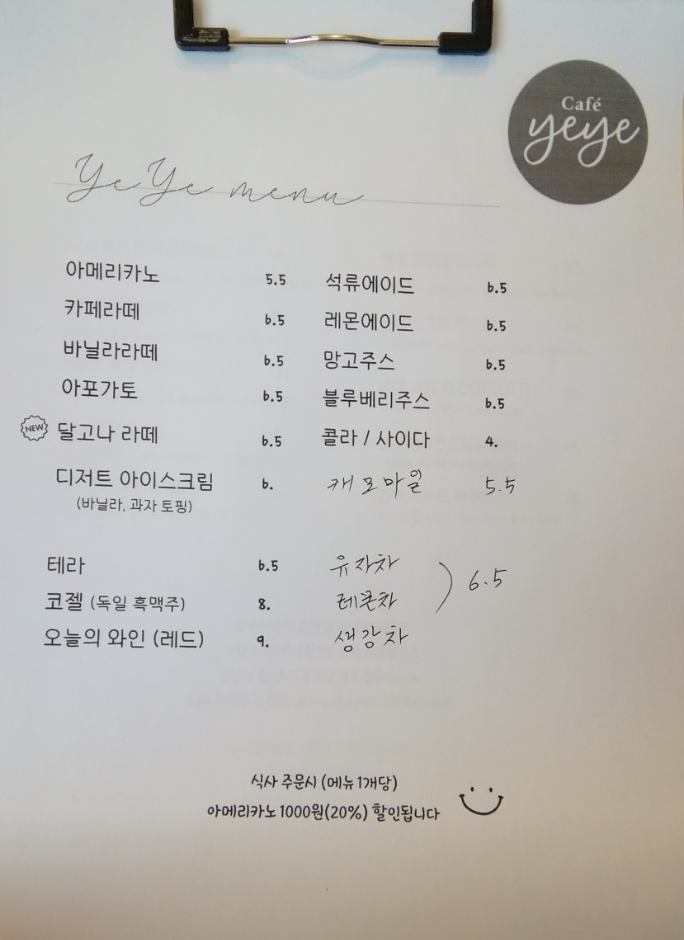 Café
yeye
YeYe menu
아메리카노 5.5
카페라떼 6.5
바닐라라떼 6.5
아포가토 6.5
NEW 달고나 라떼 6.5
디저트 아이스크림 6.
(바닐라, 과자 토핑)
석류에이드 6.5
레몬에이드 6.5
망고주스 6.5
블루베리주스 6.5
콜라 / 사이다 4.
캐모마일 5.5
테라 6.5
코젤 (독일 흑맥주) 8.
오늘의 와인 (레드) 9.
유자차
레몬차 ) 6.5
생강차
식사 주문시 (메뉴 1개당)
아메리카노 1000원(20%) 할인됩니다